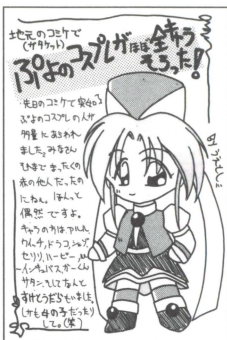 地元のコミケで
(ガタケット)
ぷよのコスプレがほぼ全キャラ
そろった!
先日のコミケで突如3
ぷよのコスプレの人が
多量にあらわれ
ました。みなさん
ひまで まったくの
赤の他人だったの
にねぇ。ほんっと
偶然ですよ。
キャラの方はアルル、
ウィッチ、ドラコ、シェゾ、
セリリ、ハーピー、
インキュバス、カーくん
サタン、そしてなんと
すけとうだらもいました。
しかも女の子だったり
して。(笑)